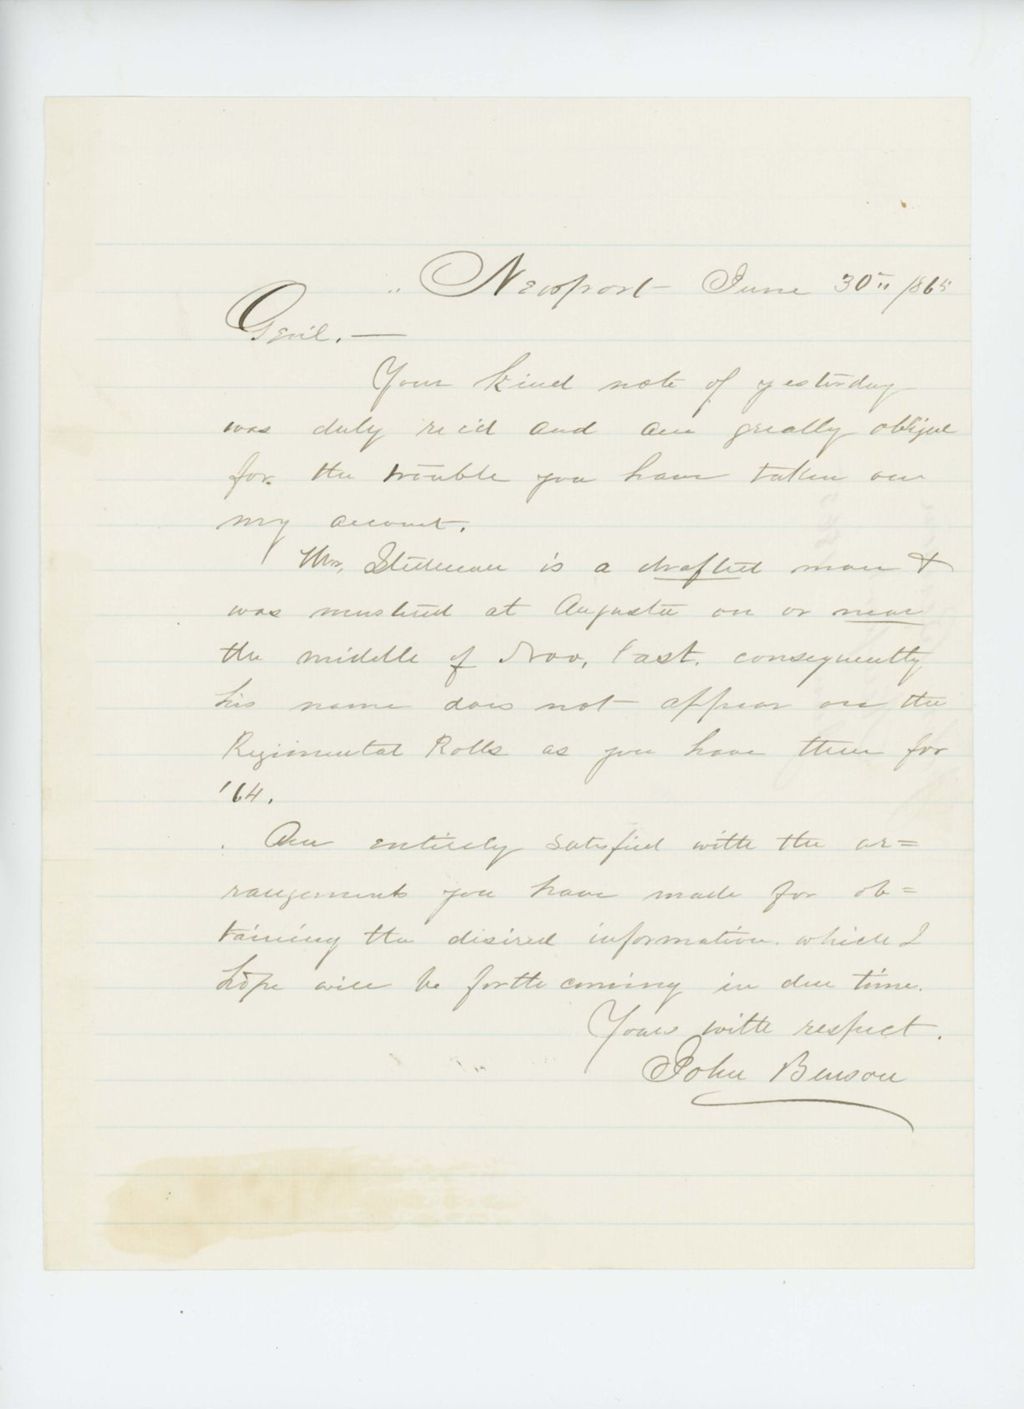 Newport June 30" /865
Genl. —
Your kind note of yesterday
was duly rec'd and am greatly oblige
for the trouble you have taken on
my account.
Mr. Stedman is a drafted man &
was mustered at Augusta on or near
the middle of Nov. last. consequently
his name does not appear on the
Regimental Rolls as you have them for
'64.
Am entirely satisfied with the ar=
rangements you have made for ob=
taining the desired information. which I
hope will be forthcoming in due time.
Yours with respect.
John Benson